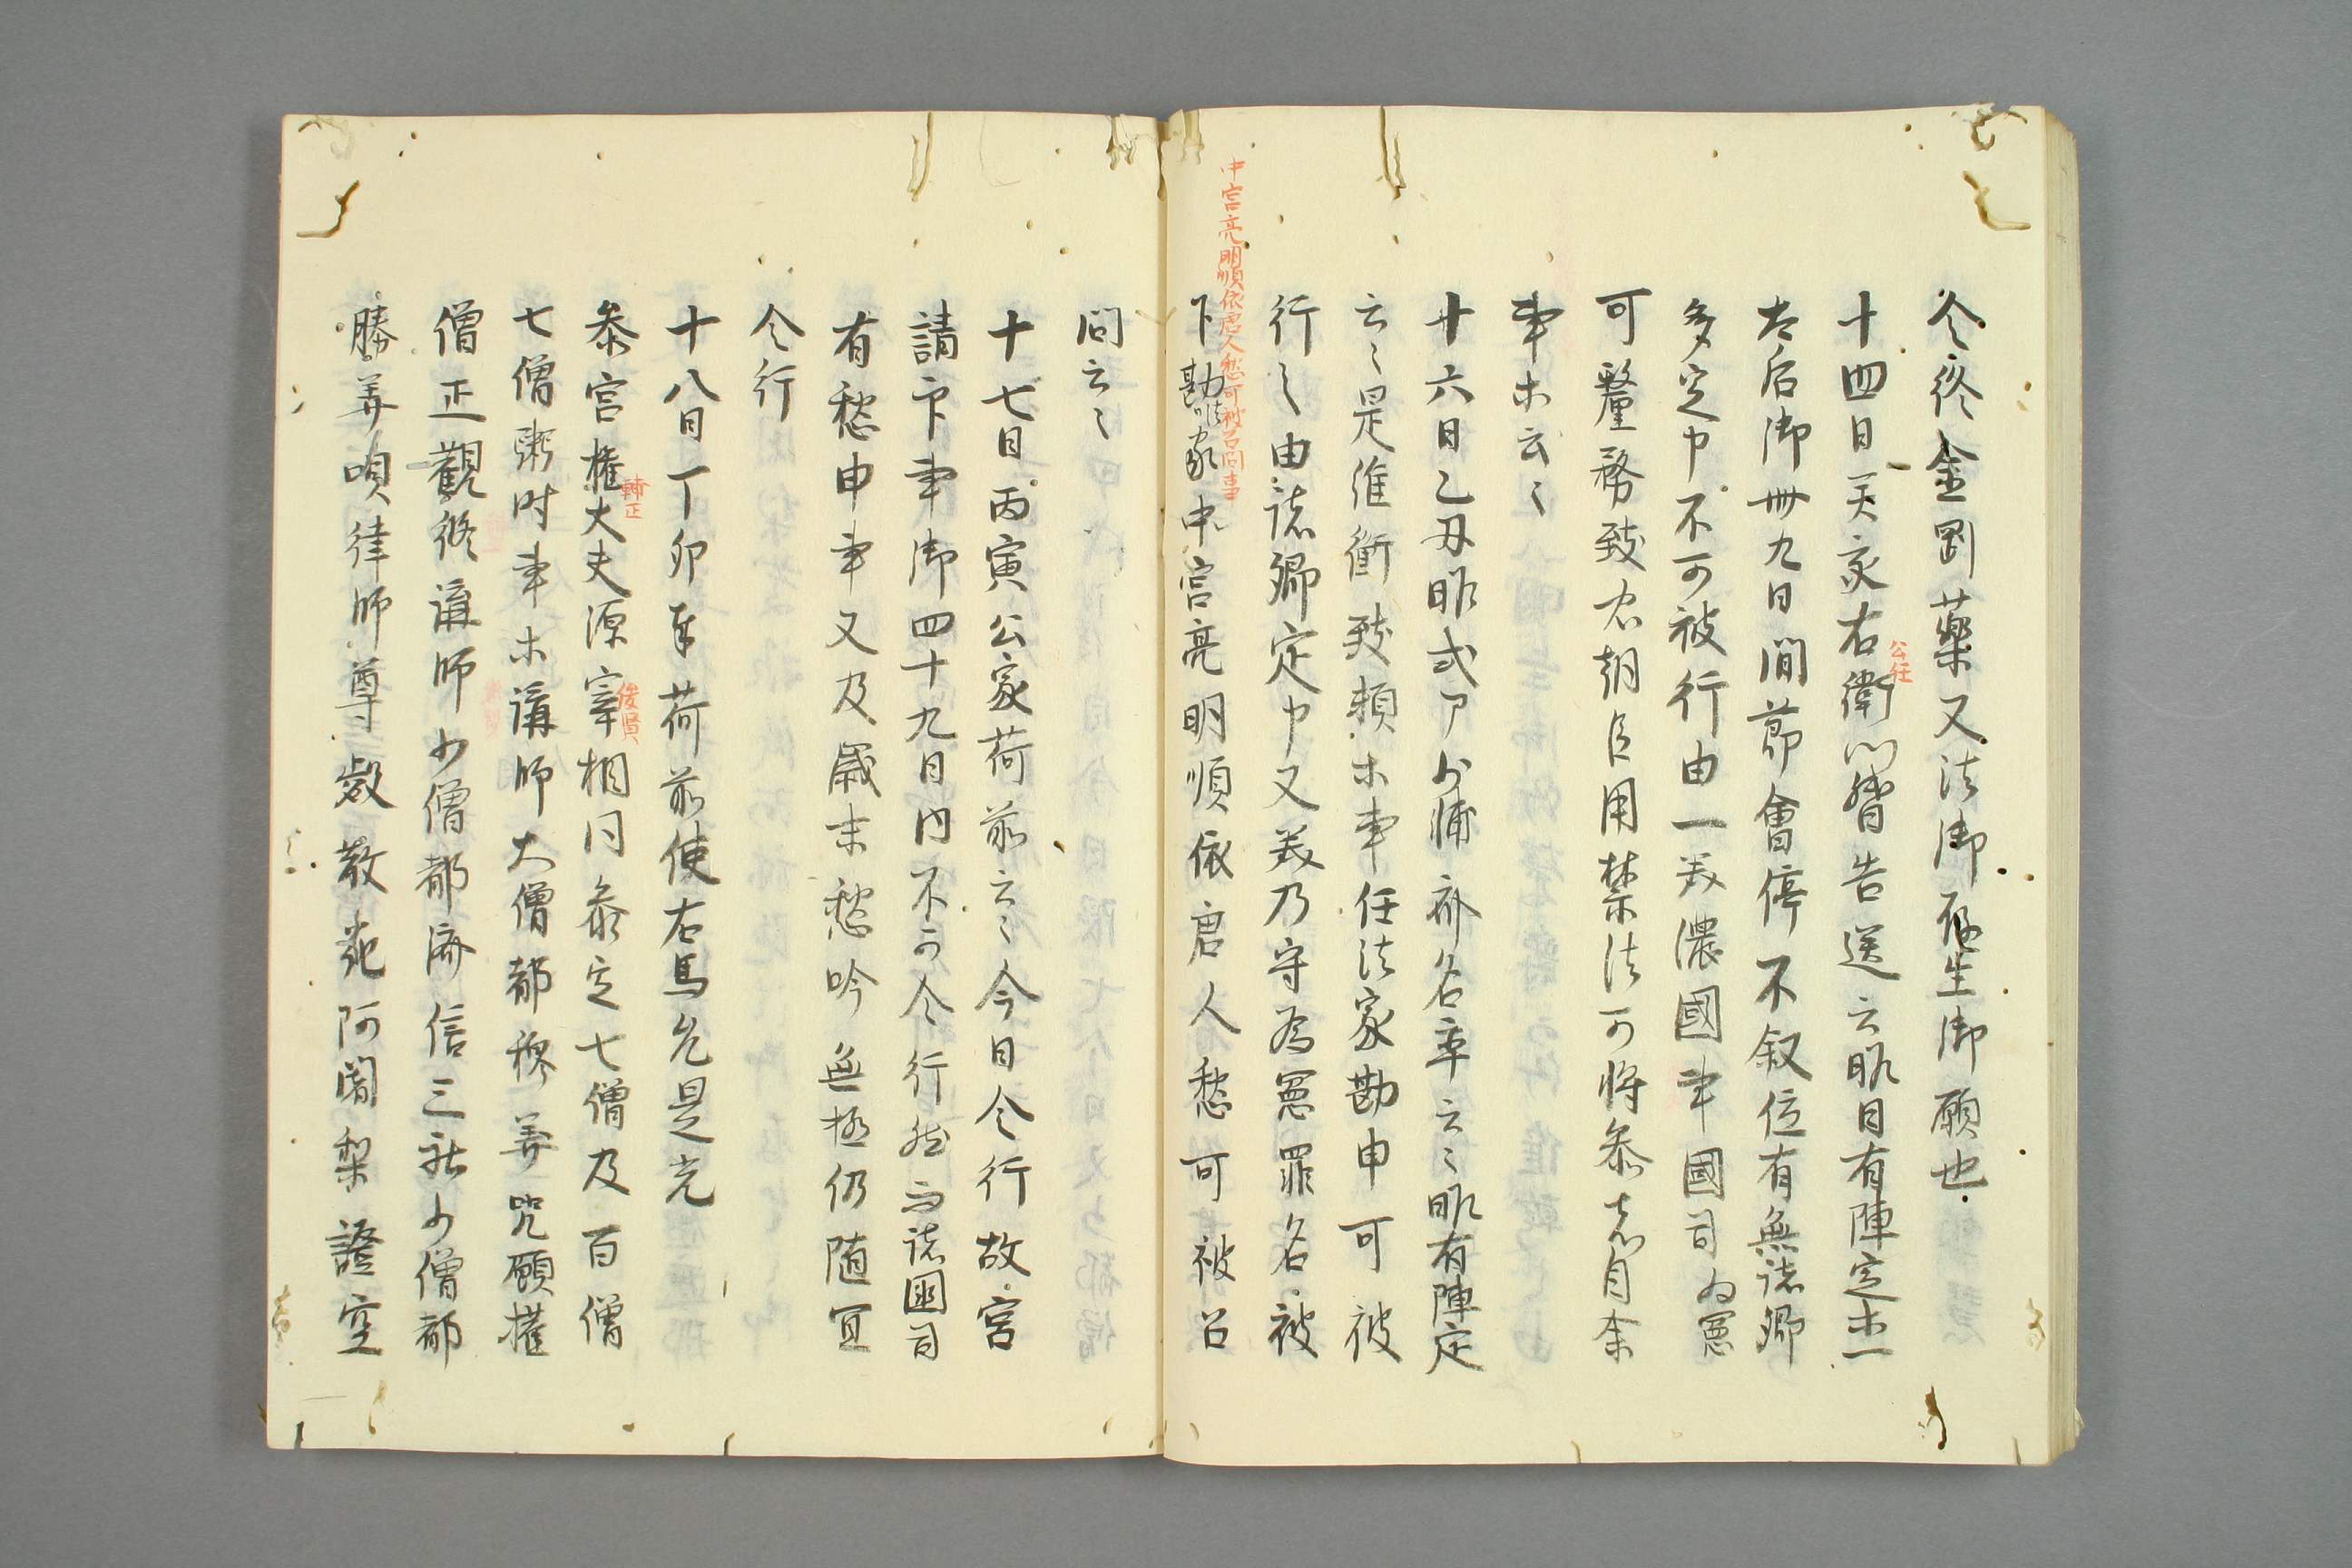 令終金剛藥又法御存生御願也
十四日癸亥右衛門督告送云明日有陣定一
公任
太后御卌九日間節會停不叙位有無諸卿
多定申不可被行由一美濃國事國司為憲
可釐務致忠朝臣用禁法可將参志月余
事等云々
十六日乙丑昨式部少浦齊名卒云々昨有陣定
云々是維衡致頼等事任法家勘申可被
行之由諸卿定申又美乃守為憲罪名被
中宮亮明順依唐人愁可被召問事
下勘法家中宮亮明順依唐人愁可被召
問云々
十七日丙寅公家荷前云々今日令行故宮
請印事御四十九日内不可令行然而諸國司
有愁申事又及歳末愁吟無極仍随宜
令行
十八日丁卯奉荷前使右馬允是光
参宮権大夫源宰相同参定七僧及百僧
輔正
俊賢
七僧粥时事等講師大僧都穆筭咒願権
僧正觀修講師少僧都済信三礼少僧都
勝筭唄律師尊叡散花阿闍梨證空